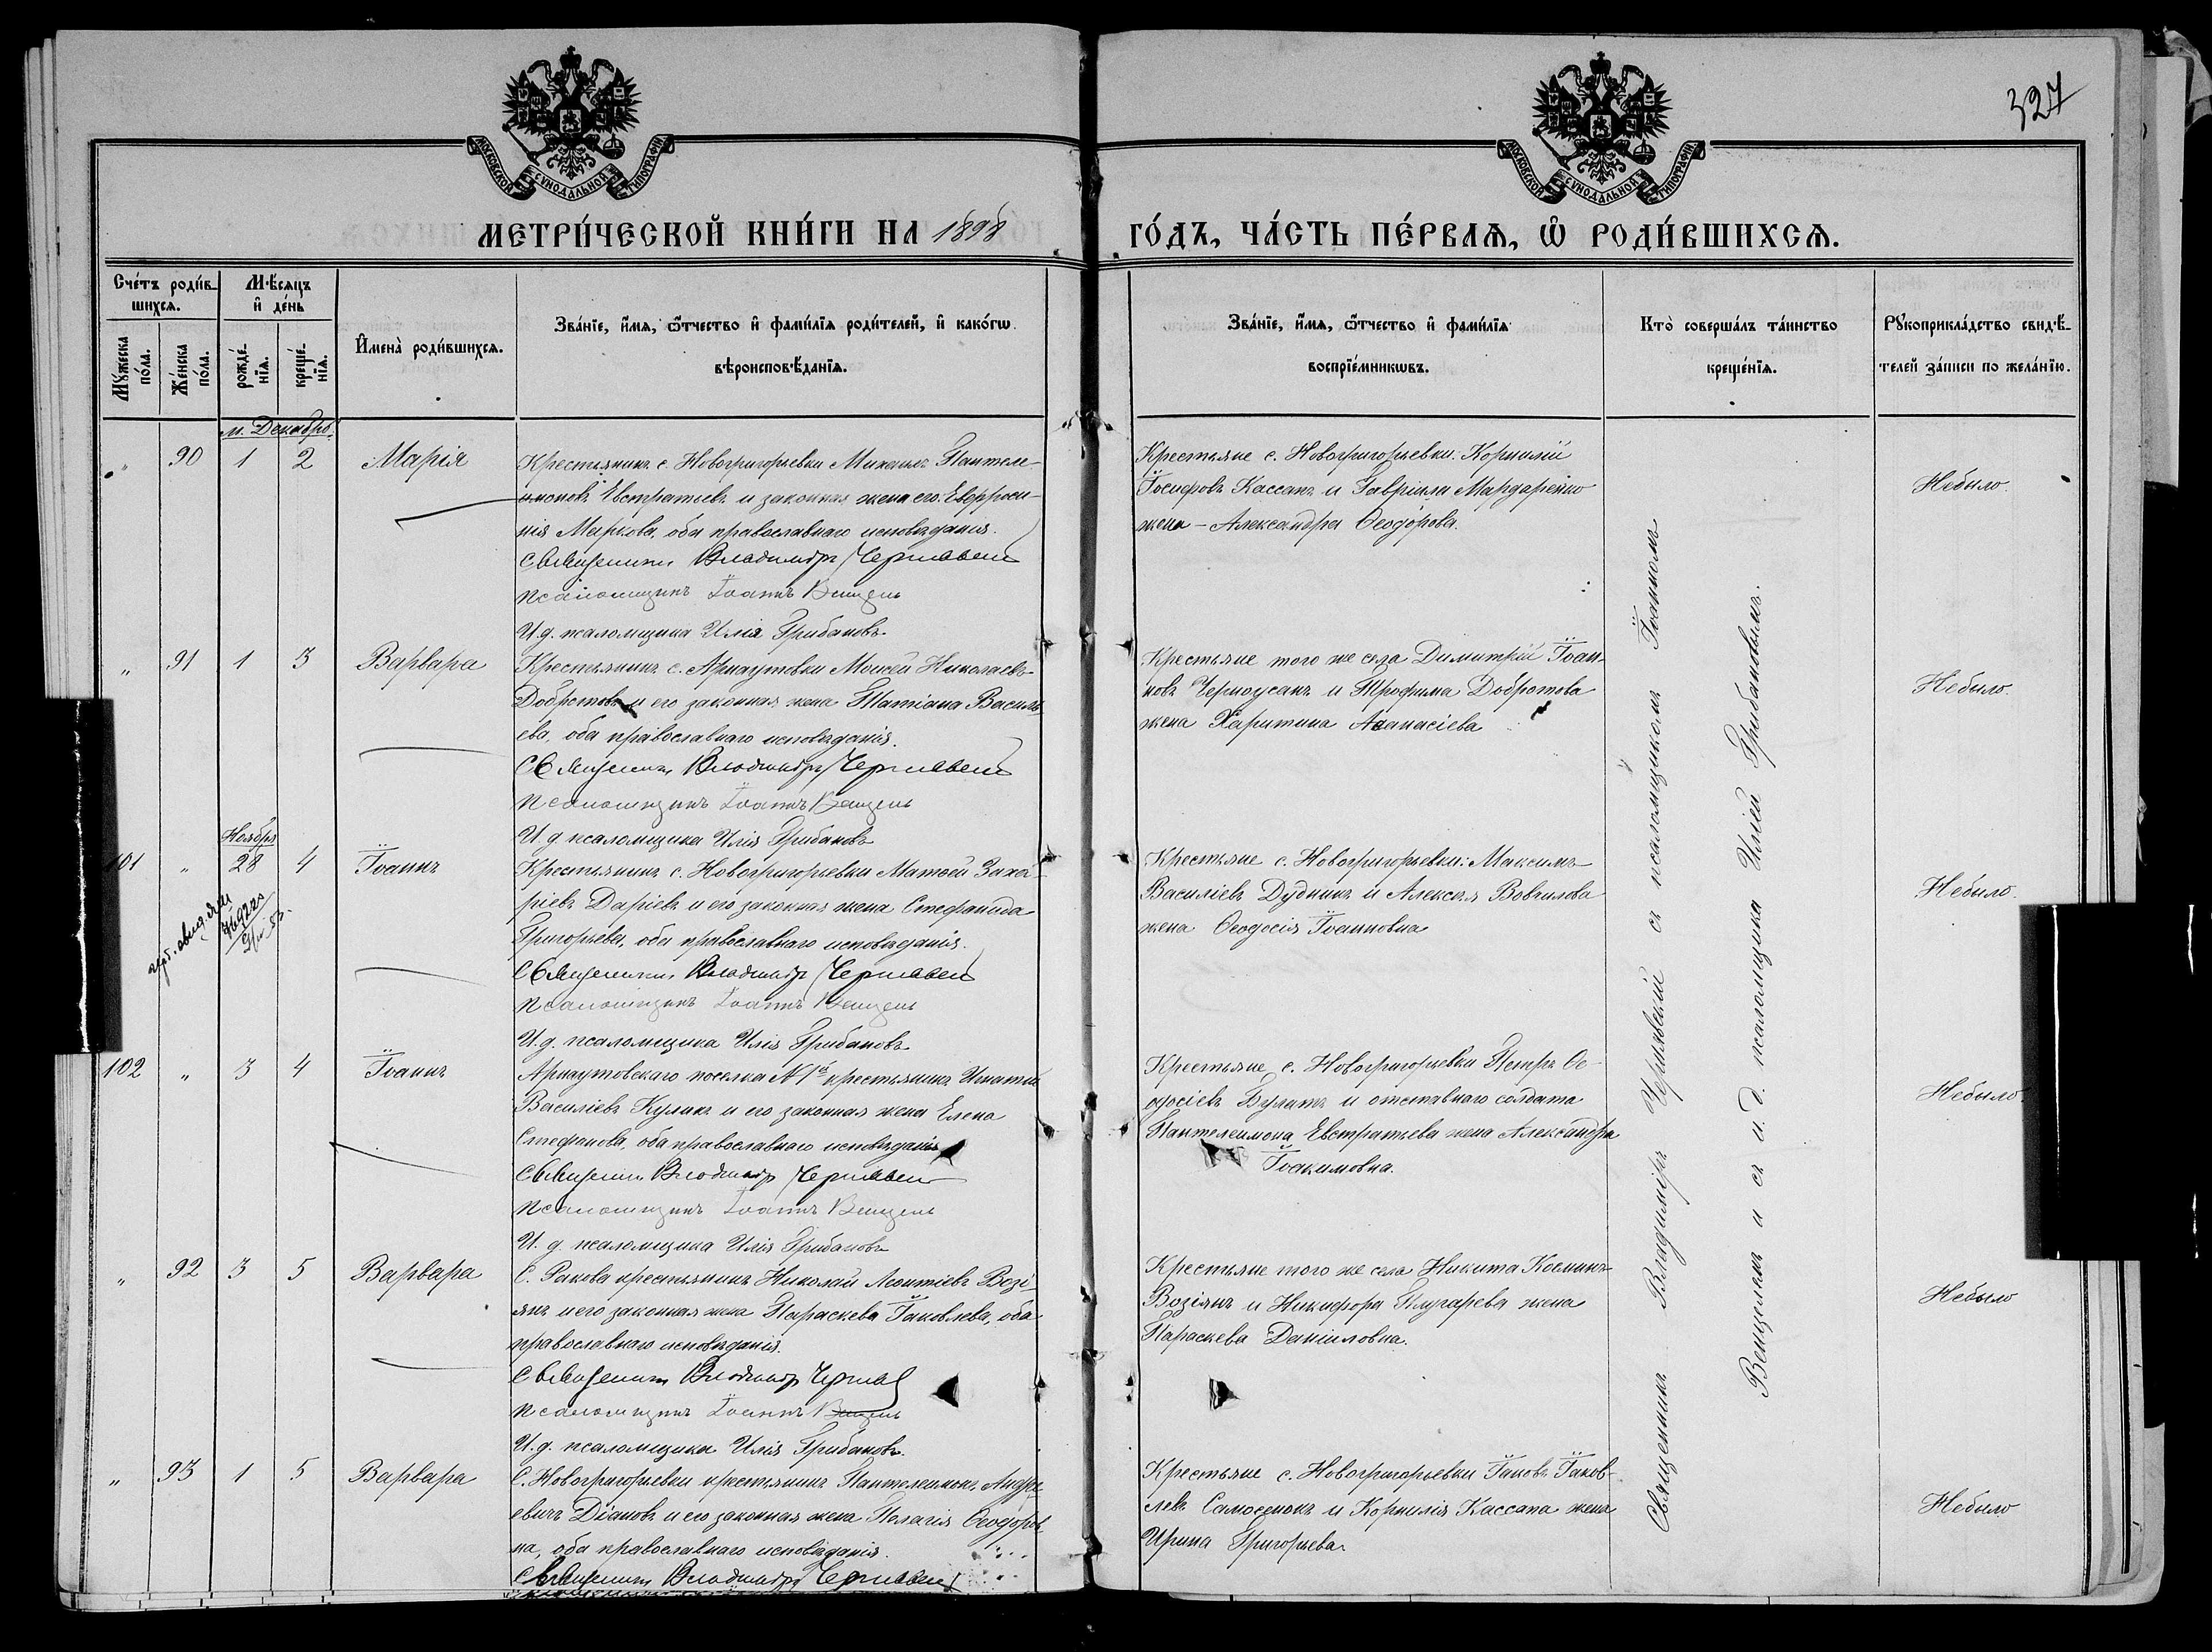 327
МОСКОВСКОЙ СѴНОДАЛЬНОЙ ТИПОГРАФІИ
МОСКОВСКОЙ СѴНОДАЛЬНОЙ ТИПОГРАФІИ
МЕТРИ́ЧЕСКОЙ КНИ́ГИ НА 1898 ГО́ДЪ, ЧА́СТЬ ПЕ́РВАѦ, Ѡ РОДИ́ВШИХСѦ.
Сче́тъ роди́в-
шихсѧ.
Мѹ́жеска по́ла.
Же́нска по́ла.
Мѣ́сѧцъ
и҆ де́нь
рожде́-
нїѧ.
креще́-
нїѧ.
И҆мена̀ роди́вшихсѧ.
Зва́нїе, и҆́мѧ, ѻ҆́тчество и҆ фами́лїѧ роди́телей, и҆ како́гѡ
вѣроисповѣ́данїѧ.
Зва́нїе, и҆́мѧ, ѻ҆́тчество и҆ фами́лїѧ
воспрїе́мникѡвъ.
Кто̀ соверша́лъ та́инство
креще́нїѧ.
Рѹкоприкла́дство свидѣ́-
телей за́писи по жела́нїю.
м. Декабрь.
" 90 1 2 Марія
Крестьянинъ с. Новогригорьевки Михаилъ Пантеле-
имоновъ Евстратьевъ и законная жена его Евфроси-
нія Маркова, оба православнаго исповѣданія.
Священникъ Владимиръ Чернявскій
Псаломщикъ Іоаннъ Венцель
И.д. псаломщика Илія Грибановъ
Крестьяне с. Новогригорьевки: Корнилій
Іосифовъ Кассанъ и Гавріила Мардаренко
жена – Александра Ѳеодорова.
Небыло.
" 91 1 3 Варвара
Крестьянинъ с. Арнаутовки Моисей Николаевъ
Добротовъ и его законная жена Татіана Василь-
ева, оба православнаго исповѣданія.
Священникъ Владимиръ Чернявскій
Псаломщикъ Іоаннъ Венцель
И.д. псаломщика Илія Грибановъ
Крестьяне того же села Димитрій Іоан-
новъ Черноусанъ и Трофима Добротова
жена Харитина Аѳанасіева
Небыло.
Ноября
101 " 28 4 Іоаннъ
Крестьянинъ с. Новогригорьевки Матѳей Заха-
ріевъ Даріевъ и его законная жена Стефанида
Григорьева, оба православнаго исповѣданія.
Священникъ Владимиръ Чернявскій
Псаломщикъ Іоаннъ Венцель
И.д. псаломщика Илія Грибановъ
Крестьяне с. Новогригорьевки: Максимъ
Василіевъ Дудникъ и Алексѣя Вовчилова
жена Ѳеодосія Іоанновна
Небыло.
102 " 3 4 Іоаннъ
Арнаутовскаго поселка №1й крестьянинъ Игнатій
Василіевъ Куликъ и его законная жена Елена
Стефанова, оба православнаго исповѣданія
Священникъ Владимиръ Чернявскій
Псаломщикъ Іоаннъ Венцель
И.д. псаломщика Илія Грибановъ
Крестьяне с. Новогригорьевки Петръ Ѳе-
одосіевъ Булатъ и отставнаго солдата
Пантелеимона Евстратьева жена Александра
Іоакимовна.
Небыло.
" 92 3 5 Варвара
С. Ракова крестьянинъ Николай Леонтіевъ Возі-
янъ и его законная жена Параскева Іаковлева, оба
православнаго исповѣданія.
Священникъ Владимиръ Черняв
Псаломщикъ Іоаннъ Венцель
И.д. псаломщика Илія Грибановъ
Крестьяне того же села Никита Косминъ
Возіянъ и Никифора Плугарева жена
Параскева Даніиловна.
Небыло
" 93 1 5 Варвара
С. Новогригорьевки крестьянинъ Пантелеимонъ Андре-
евичъ Діановъ и его законная жена Пелагія Ѳеодоров-
на, оба православнаго исповѣданія.
Священникъ Владимиръ Чернявскій
Крестьяне с. Новогригорьевки Іаковъ Іаков-
левъ Самосенокъ и Корнилія Кассана жена
Ирина Григорьева
Небыло
Священникъ Владиміръ Чернявскій съ псаломщикомъ Іоанномъ
Венцелемъ и съ и.д. псаломщика Иліей Грибановымъ.